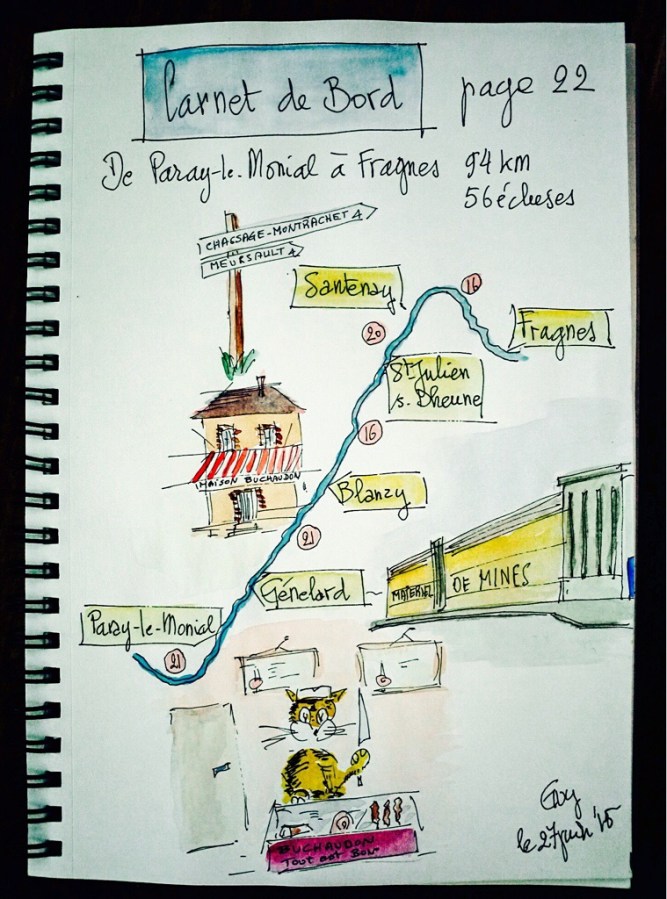 Carnet de Bord
page 22
De Paray-le-Monial à Fragnes 94 km
56 écluses
CHAGSAGE-MONTRACHET 4
MEURSAULT 4
Santenay
16
Fragnes
20
St Julien
/s. Dheune
16
MAISON BUCHAUDON
Blanzy
21
Génelard
MATERIEL DE MINES
Paray-le-Monial
21
BUCHAUDON
TOUT EST BON
Guy
le 27 juin '15